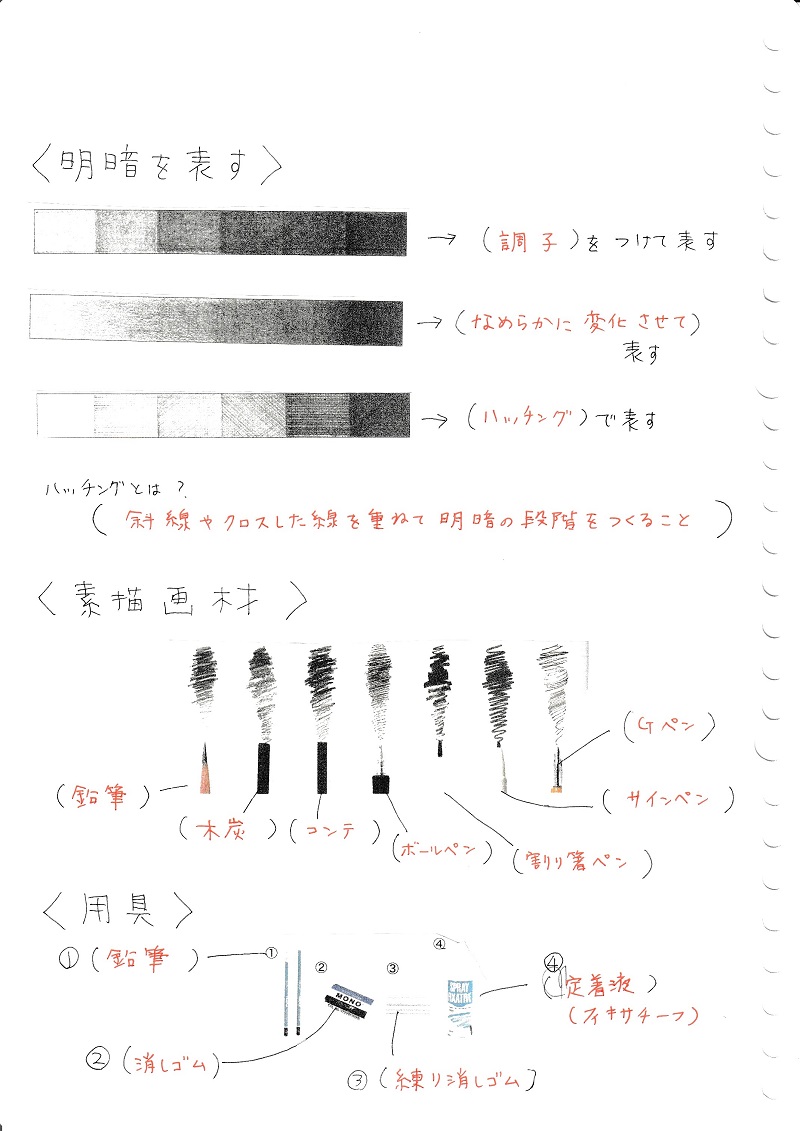 〈明暗を表す〉
→ (調子)をつけて表す
→ (なめらかに変化させて)
表す
→ (ハッチング)で表す
ハッチングとは?
(斜線やクロスした線を重ねて明暗の段階をつくること)
〈素描画材〉
(Gペン)
(鉛筆)
(サインペン)
(木炭)
(コンテ)
(ボールペン)
(割り箸ペン)
〈用具〉
①(鉛筆)
①
②
③
④
MONO
SPRAY
④
(定着液)
(フィキサチーフ)
②(消しゴム)
③(練り消しゴム)